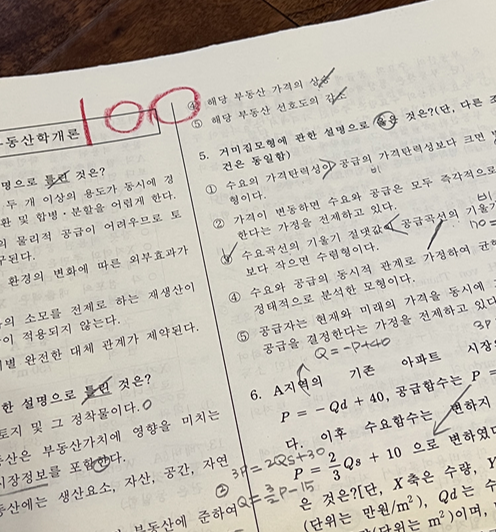 100
동산학개론
명으로 틀린 것은?
두 개 이상의 용도가 동시에 경
환 및 합병·분할을 어렵게 한다.
의 물리적 공급이 어려우므로 토
구된다.
환경의 변화에 따른 외부효과가
의 소모를 전제로 하는 재생산이
이 적용되지 않는다.
별 완전한 대체 관계가 제약된다.
한 설명으로 틀린 것은?
토지 및 그 정착물이다.
산은 부동산가치에 영향을 미치는
시장정보를 포함한다.
동산에는 생산요소, 자산, 공간, 자연
부동산에 준하여
④ 해당 부동산 가격의 상승
⑤ 해당 부동산 선호도의 감소
5. 거미집모형에 관한 설명으로 옳은 것은?(단, 다른 조
건은 동일함)
① 수요의 가격탄력성이 공급의 가격탄력성보다 크면
비
형이다.
② 가격이 변동하면 수요와 공급은 모두 즉각적으로
한다는 가정을 전제하고 있다.
비
③ 수요곡선의 기울기 절댓값이 공급곡선의 기울기
보다 작으면 수렴형이다.
④ 수요와 공급의 동시적 관계로 가정하여 균
정태적으로 분석한 모형이다.
⑤ 공급자는 현재와 미래의 가격을 동시에
공급을 결정한다는 가정을 전제하고 있다
Q=-P+40
6. A지역의 기존 아파트 시장
P = -Qd + 40, 공급함수는 P =
다. 이후 수요함수는 변하지
3P=2Qs+30
P = 2/3 Qs + 10 으로 변하였다
② Q=3/2P-15
은 것은?[단, X축은 수량, Y
(단위는 만원/m²), Qd는 수
단위는 m²)이며,